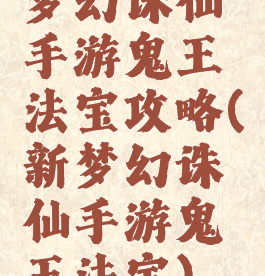 梦幻诛仙
手游鬼王
法宝攻略(
新梦幻诛
仙手游鬼
王法宝)